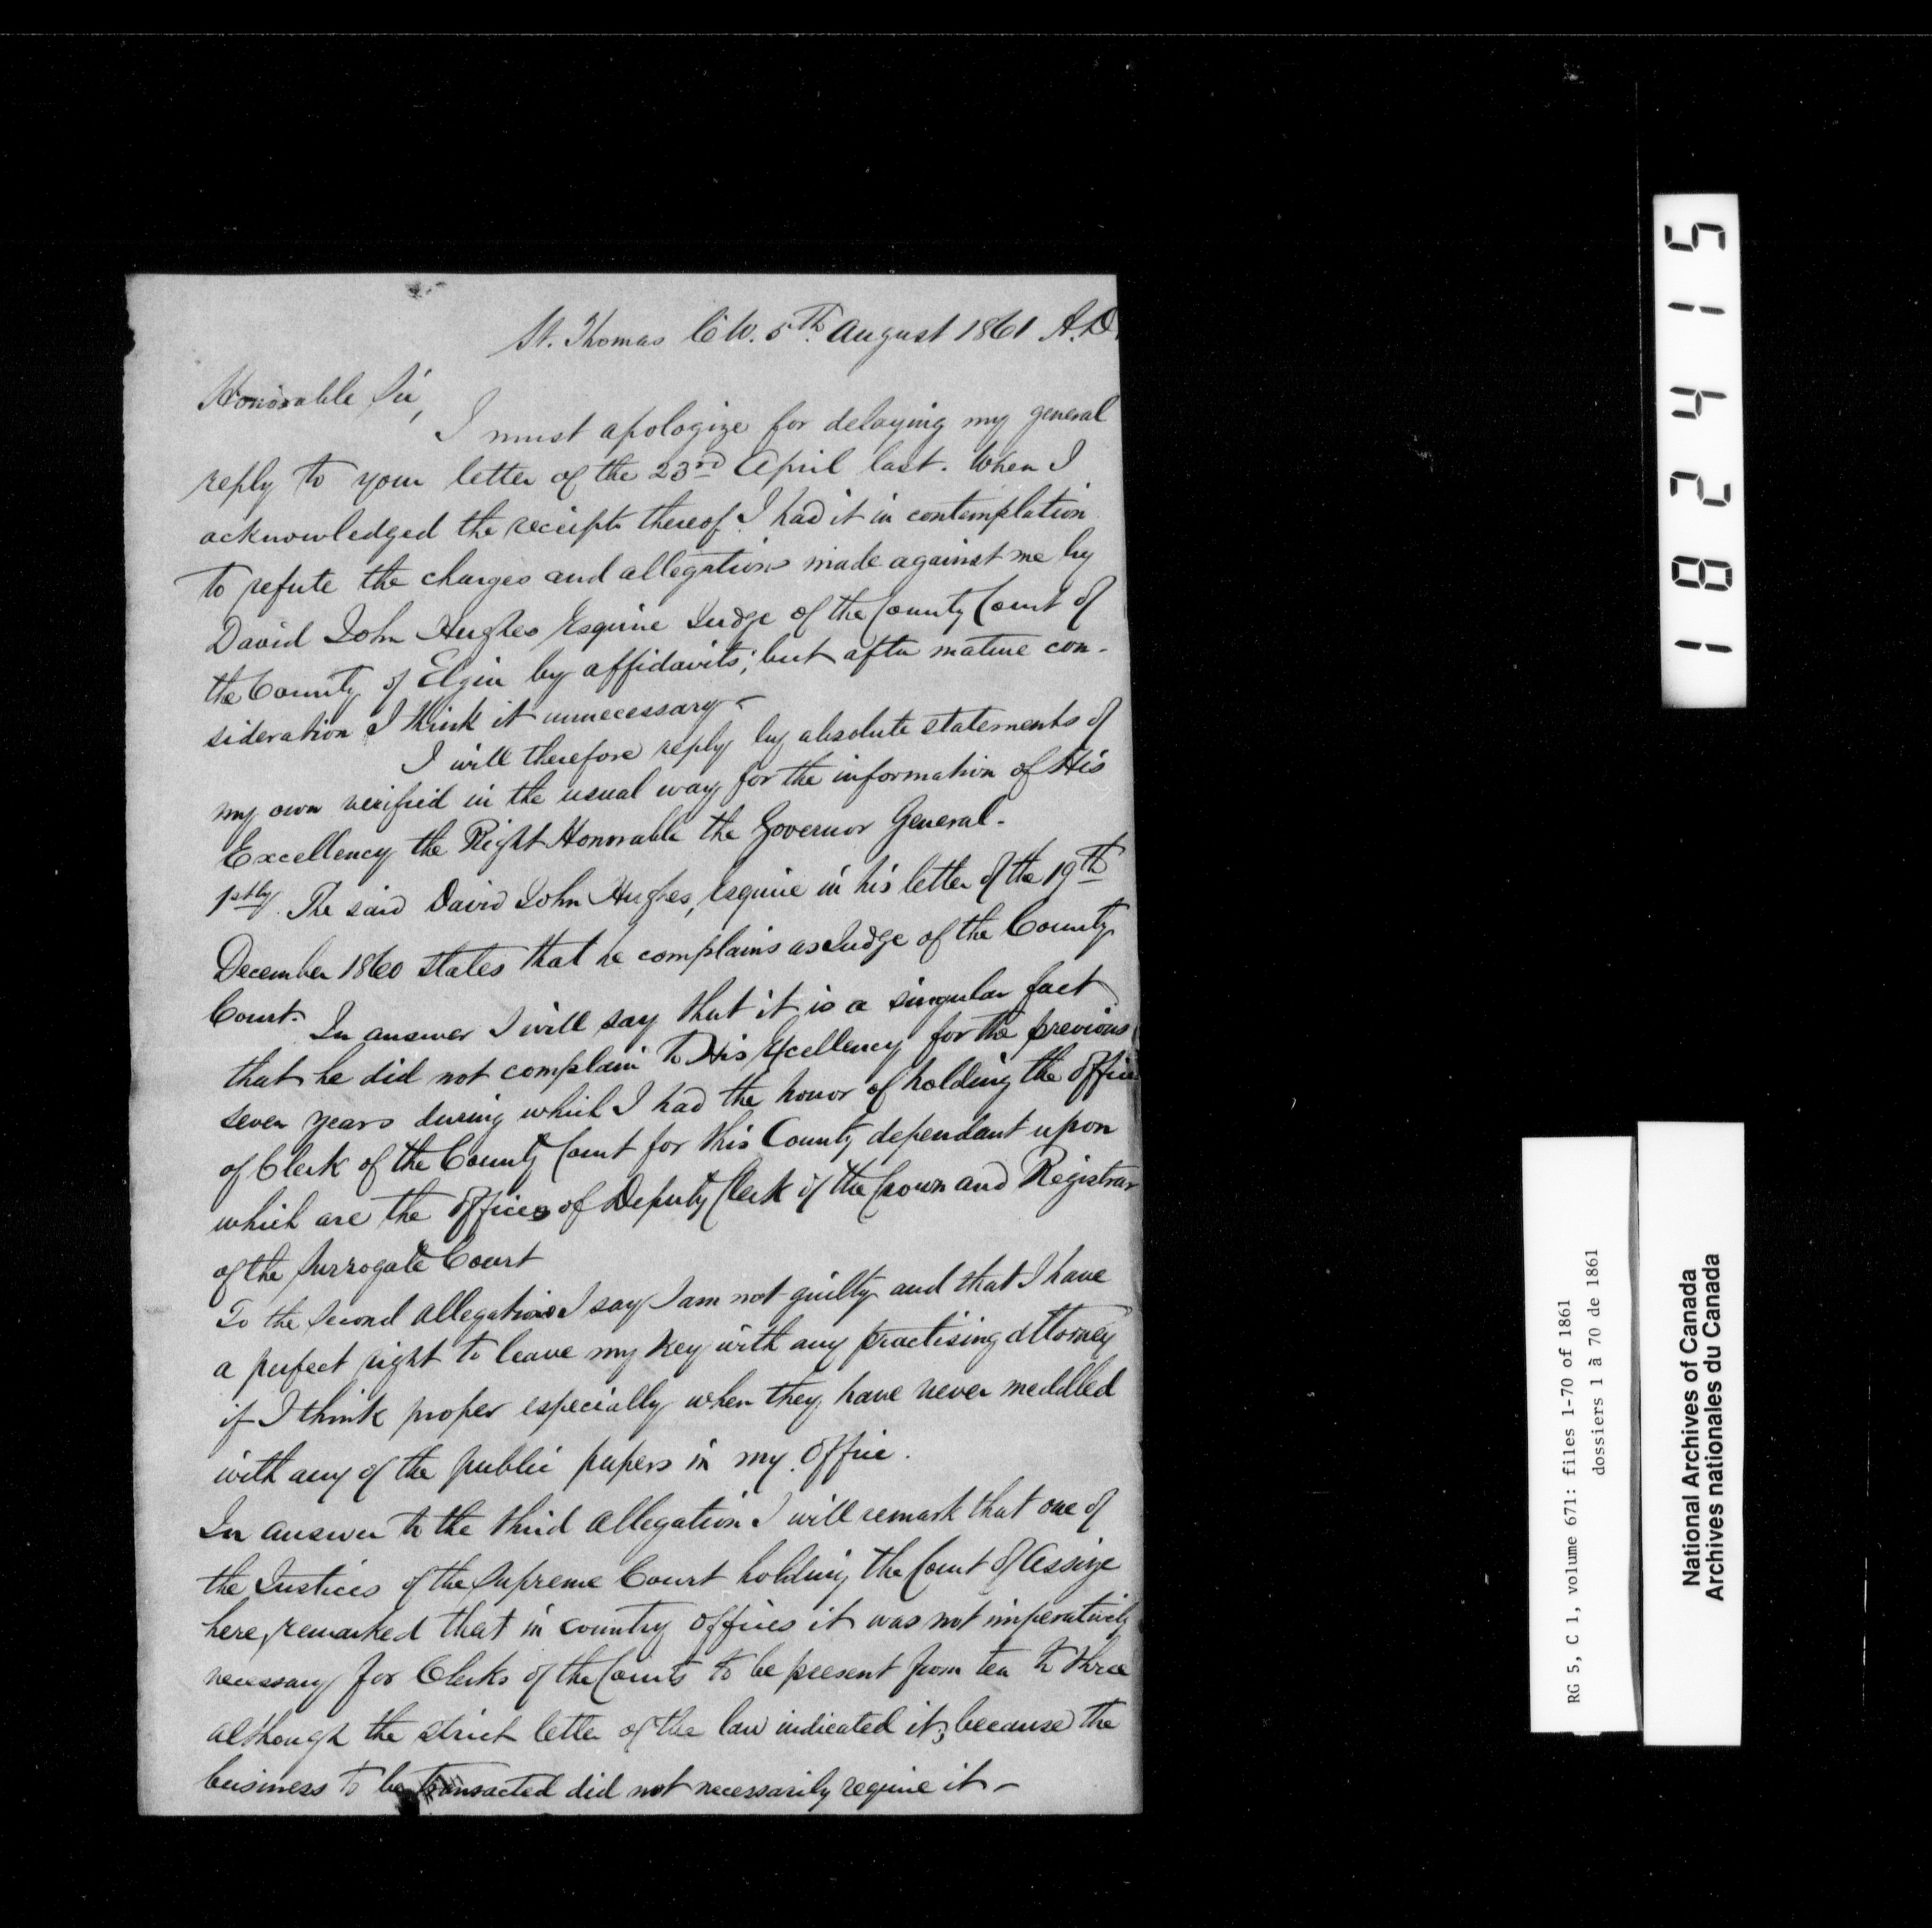 St. Thomas C W. 5th August 1861 A.D.
Honorable Sir,
I must apologize for delaying my general
reply to your letter of the 23rd April last. When I
acknowledged the receipt thereof I had it in contemplation
to refute the charges and allegations made against me by
David John Hughes Esquire Judge of the County Court of
the County of Elgin by affidavits; but after mature con-
sideration I think it unnecessary -
I will therefore reply by absolute statements of
my own verified in the usual way for the information of His
Excellency the Right Honorable the Governor General.
1stly. The said David John Hughes, Esquire in his letter of the 19th
December 1860 states that he complains as Judge of the County
Court. In answer I will say that it is a singular fact
that he did not complain to His Excellency for the previous
seven years during which I had the honor of holding the Office
of Clerk of the County Court for this County dependant upon
which are the Offices of Deputy Clerk of the Crown and Registrar
of the Surrogate Court
To the Second allegation I say I am not guilty and that I have
a perfect right to leave my key with any practising attorney
if I think proper especially when they have never meddled
with any of the public papers in my Office.
In answer to the third allegation I will remark that one of
the Justices of the Supreme Court holding the Court of Assize
here, remarked that in country offices it was not imperatively
necessary for Clerks of the Courts to be present from ten to three
although the strict letter of the law indicated it; because the
business to be transacted did not necessarily require it -
182415
RG 5, C 1, volume 671: files 1-70 of 1861
dossiers 1 à 70 de 1861
National Archives of Canada
Archives nationales du Canada